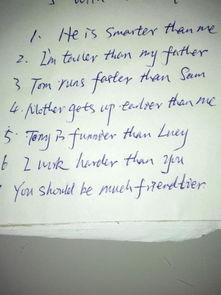 1. He is smarter than me
2. I'm taller than my father
3. Tom runs faster than Sam
4. Mother gets up earlier than me
5. Tony is funnier than Lucy
6 I work harder than you
You should be much friendlier.